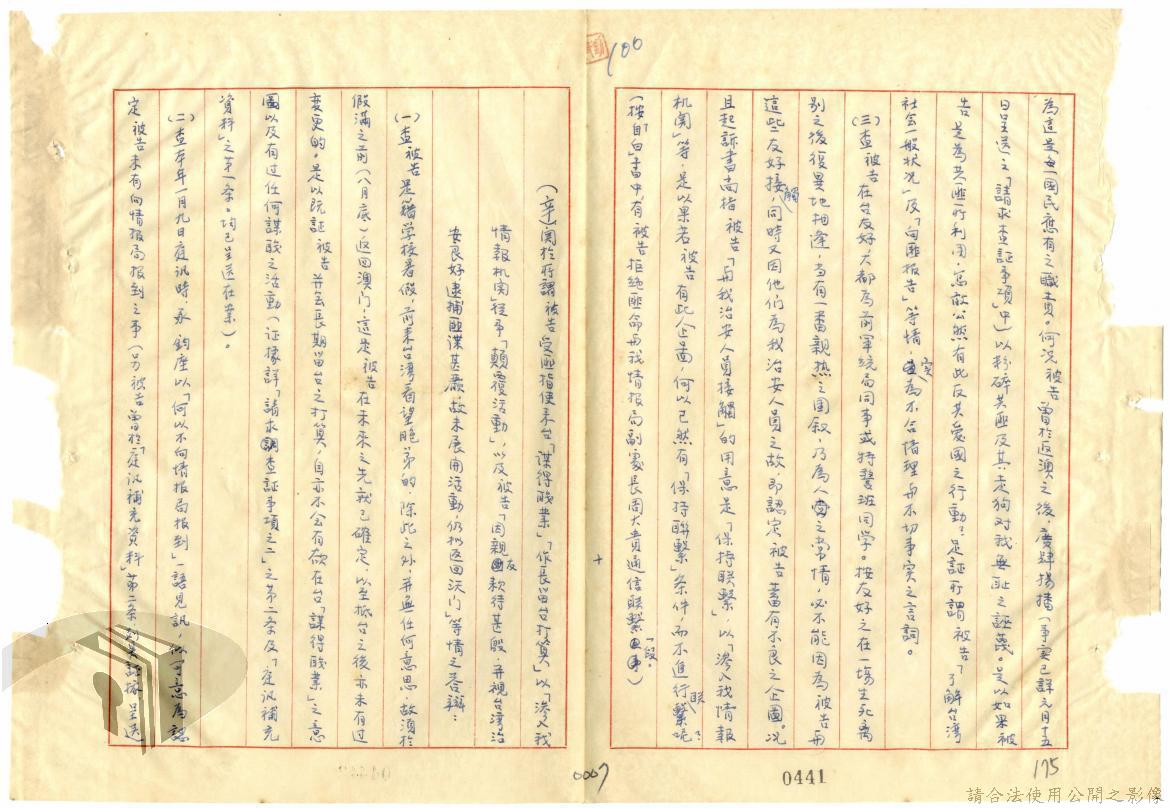 100
為這是每一國民應有之職責。何況被告曾於返澳之後，廣肆揚播（事實已詳元月十五
日呈送之「請求查証事項」中）以粉碎共匪及其走狗對我無恥之誣蔑。是以如果被
告是為共匪所利用，怎敢公然有此反共愛國之行動？是証所謂被告「了解台灣
社会一般狀况」及「向匪报告」等情，实為不合情理與不切事实之言詞。
（三）查被告在台友好，大都為前軍統局同事或特警班同学。按友好之在一場生死离
别之後復異地相逢，当有一番親热之图叙，乃為人之常情，必不能因為被告與
這些友好接觸，同時又因他们為我治安人員之故，即認定被告蓄有不良之企圖。况
且起訴書尚指被告「與我治安人員接觸」的用意是「保持联繫」，以「滲入我情報
机関」等，是以果若被告有此企圖，何以已然有「保持聯繫」条件，而不進行联繫呢？
（按「自白」書中有被告拒绝匪命與我情报局副處長周大貴通信联繫一段。）
175
0441
（辛）関於所謂被告受匪指使來台「謀得職業」「作長留台打算」以「滲入我
情報机関」從事「顛覆活動」，以及被告「因親友欵待甚殷，并視台湾治
安良好，逮捕匪谍甚嚴，故未展開活動，仍拟返回沃门」等情之答辯：
（一）查被告是藉学校暑假，前來台湾看望胞弟的，除此之外，并無任何意思，故須於
假滿之前（八月底）返回澳门，這是被告在未來之先就已確定，以至抵台之後亦未有过
变更的。是以既証被告并無長期留台之打算，自亦不会有欲在台「謀得職業」之意
圖以及有过任何謀職之活動（証據詳「請求調查証事項之二」之第二条及「庭訊補充
資料」之第一条。均已呈送在案）。
（二）查本年一月九日庭訊時，承 鈞座以「何以不向情报局报到」一語見訊，似可意為認
定被告未有向情报局报到之事（另被告曾於「庭訊補充資料」第二条列舉証據呈送
0007
請合法使用公開之影像